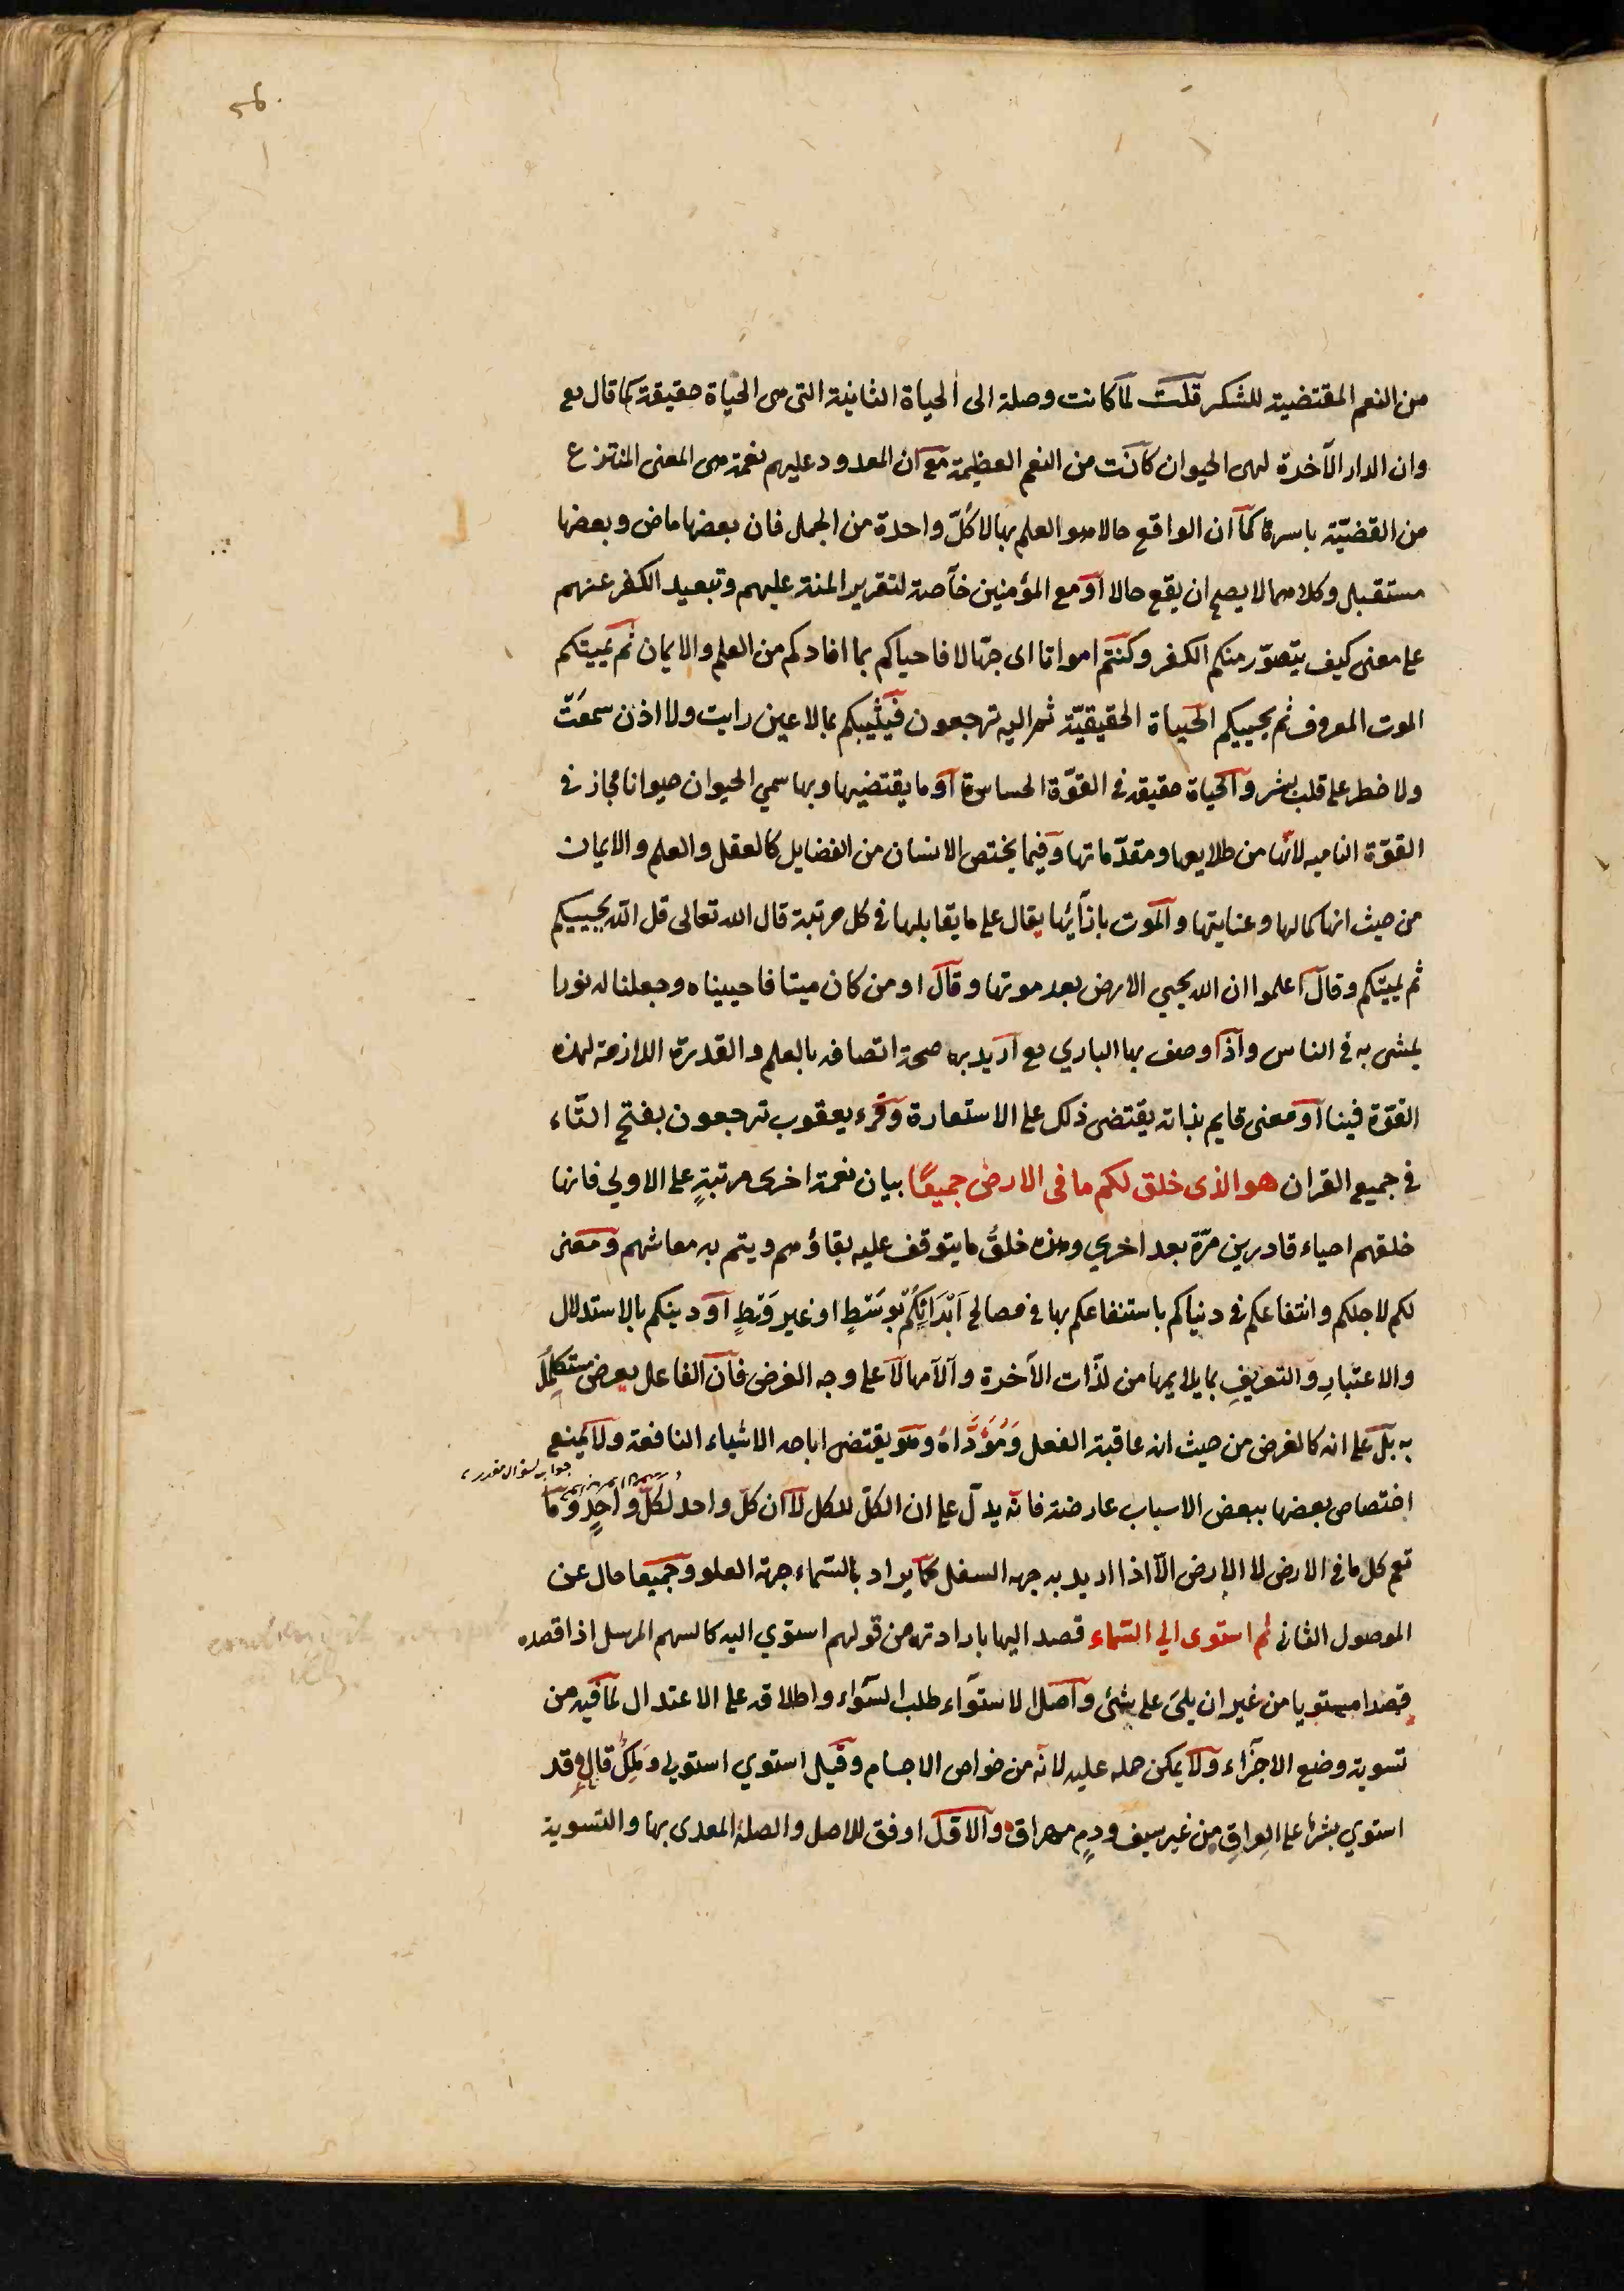 56.
من النعم المقتضية للشكر قلت لما كانت وصلة الى الحياة الثانية التى هى الحياة حقيقة كما قال تع
وان الدار الآخرة لهى الحيوان كانت من النعم العظيمة مع ان المعدود عليهم نعمة هى المعنى المنتزع
من القضيّة باسرها كما ان الواقع حالا هو العلم بها لا كلّ واحدة من الجمل فان بعضها ماض وبعضها
مستقبل وكلاهما لا يصح ان يقع حالا او مع المؤمنين خاصة لتقرير المنة عليهم وتبعيد الكفر عنهم
على معنى كيف يتصوّر منكم الكفر وكنتم امواتا اى جهّالا فاحياكم بما افادكم من العلم والايمان ثم يميتكم
الموت المعروف ثم يحييكم الحياة الحقيقيّة ثم اليه ترجعون فيثيبكم بما لا عين رايت ولا اذن سمعت
ولا خطر على قلب بشر والحياة حقيقة في القوّة الحساسة او ما يقتضيها وبها سمي الحيوان حيوانا مجاز في
القوّة الناميه لانّها من طلايعها ومقدّماتها وفيما يختص الانسان من الفضايل كالعقل والعلم والايمان
من حيث انها كمالها وعنايتها والموت بازآئها يقال على ما يقابلها في كل مرتبة قال الله تعالى قل الله يحييكم
ثم يميتكم وقال اعلموا ان الله يحيي الارض بعد موتها وقال اومن كان ميتا فاحييناه وجعلنا له نورا
يمشى به في الناس واذا وصف بها الباري تع اريد بها صحة اتصافه بالعلم والقدرة اللازمة لهذه
القوّة فينا او معنى قايم بذاته يقتضى ذلك على الاستعارة وقرء يعقوب ترجعون بفتح التّاء
في جميع القران هو الذى خلق لكم ما فى الارض جميعًا بيان نعمة اخرى مرتبةٍ على الاولي فانها
خلقهم احياء قادرين مرّة بعد اخري وهذه خلقُ ما يتوقف عليه بقاؤهم ويتم به معاشهم ومعنى
لكم لاجلكم وانتفاعكم في دنياكم باستنفاعكم بها في مصالح اَبْدَانِكُمْ بوَسَطٍ او غير وَسَطٍ او دينكم بالاستدلال
والاعتبارِ والتعريفِ بما يلايمها من لذّات الآخرة وآلامها لا على وجه الغرض فان الفاعل بعرض مستكملٌ
به بل على انه كالغرض من حيث انه عاقبة الفعل وَمُؤَدَّاهُ وهو يقتضى اباحه الاشياء النافعة ولا يمنع
جواب لسؤال مقدر
اختصاص بعضها ببعض الاسباب عارضة فانّه يدلّ على ان الكلّ للكل لا ان كلّ واحد لكلّ واحدٍ وما
تعم كل ما في الارض لا الارض الّا اذا اريد به جهه السفل كما يراد بالسّماء جهة العلو وجميعا حال عن
الموصول الثانى ثم استوى الي السّماء قصد اليها بارادته من قولهم استوي اليه كالسهم المرسل اذا قصده
قصدا مستويا من غير ان يلىَ على شئ واصل الاستوآء طلب السوآء واطلاقه على الاعتدال لما فيه من
تسوية وضع الاجزاء ولا يمكن حمله عليه لانّه من خواص الاجسام وقيل استوي استولى وملك قال قد
استوي بشرٌ على العِراقِ من غير سيف ودمٍ مهراق والاوّل اوفق للاصل والصلة المعدى بها والتسوية